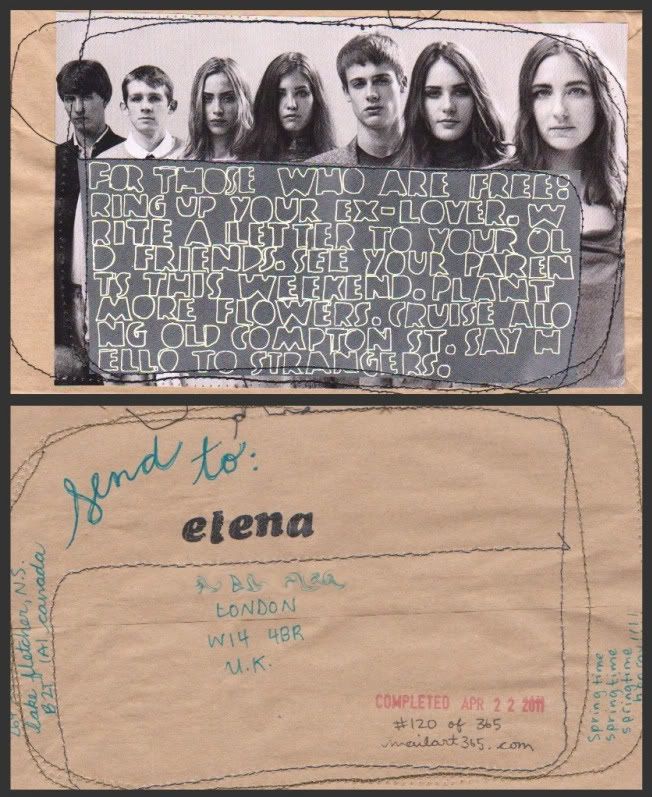 FOR THOSE WHO ARE FREE:
RING UP YOUR EX-LOVER. W
RITE A LETTER TO YOUR OL
D FRIENDS. SEE YOUR PAREN
TS THIS WEEKEND. PLANT
MORE FLOWERS. CRUISE ALO
NG OLD COMPTON ST. SAY H
ELLO TO STRANGERS.
send to:
elena
LONDON
W14 4BR
U.K.
lake fletcher, N.S.
B2T 1A1 canada
COMPLETED APR 22 2011
#120 of 365
mailart365.com
springtime
springtime
springtime